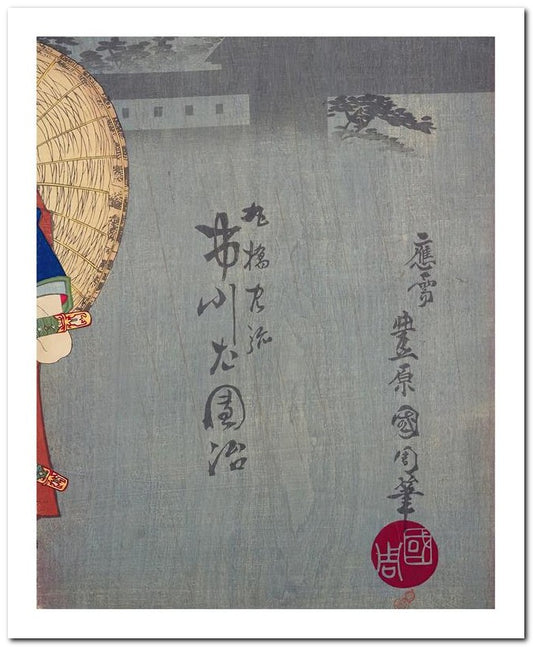 應需 豊原國周筆
國周
丸橋忠弥
市川左團治